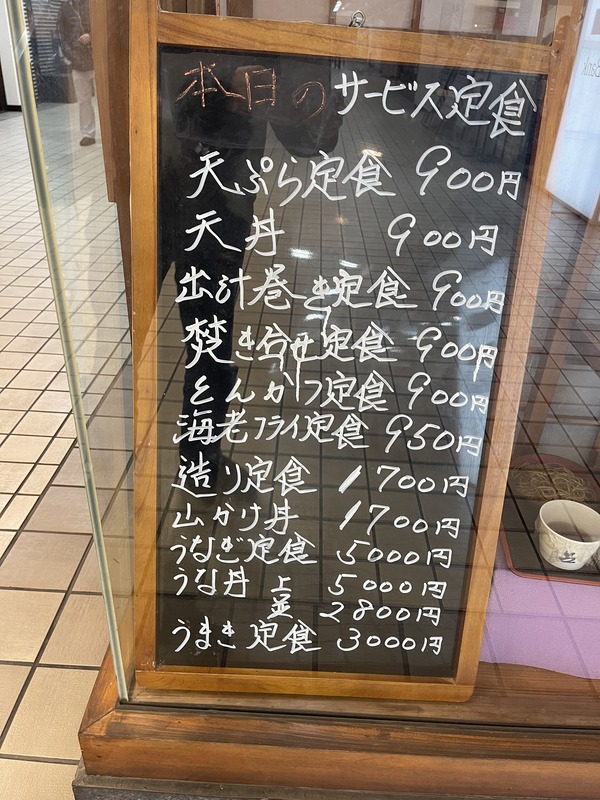 本日のサービス定食
天ぷら定食 900円
天丼 900円
出汁巻き定食 900円
焚き合せ定食 900円
とんかつ定食 900円
海老フライ定食 950円
造り定食 1700円
山かけ丼 1700円
うなぎ定食 5000円
うな丼 上 5000円
並 2800円
うまき定食 3000円